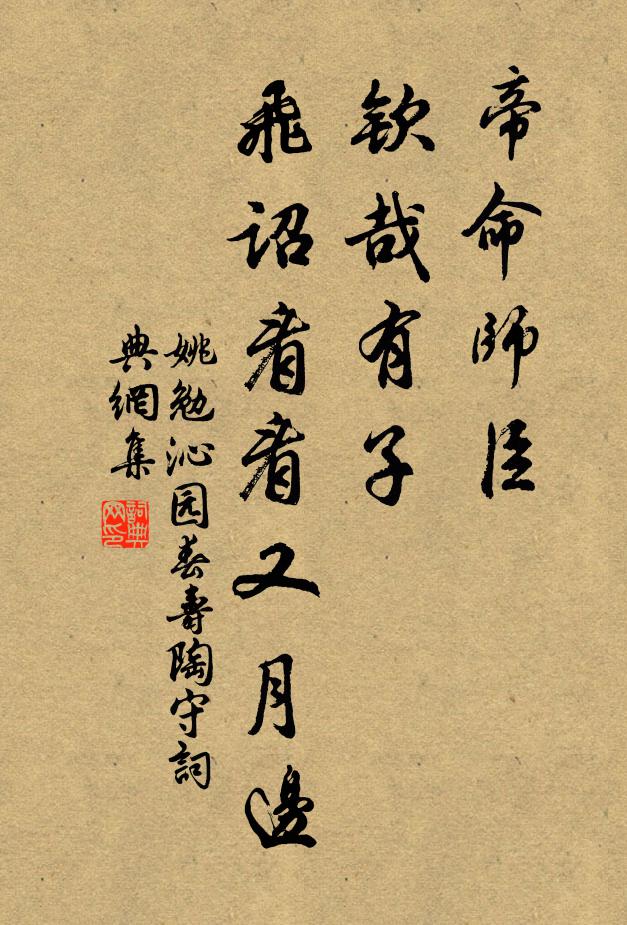 帝命師臣
欽哉有子
飛詔看看又月邊
姚勉沁园春壽陶守詞
典網集
詞典網印